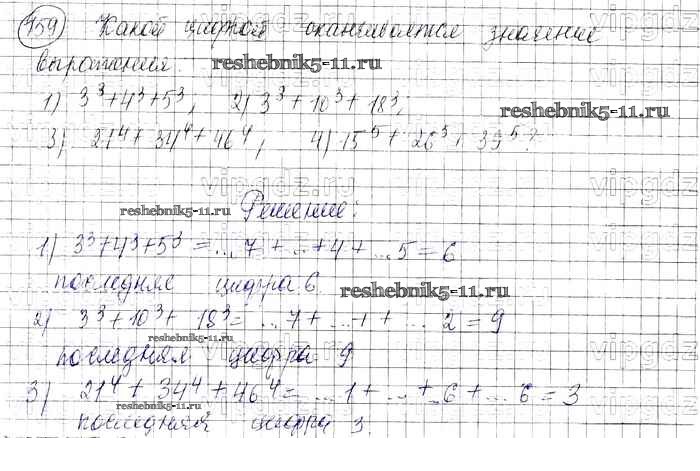 459 Какой цифрой оканчивается значение
выражения reshebnik5-11.ru
1) 3³+4³+5³, 2) 3³+10³+18³; reshebnik5-11.ru
3) 21⁴+34⁴+46⁴, 4) 15⁵+26⁵+39⁵?
vipgdz.ru
reshebnik5-11.ru Решение:
1) 3³+4³+5³ = ...7 + ...+4 + ...5 = 6
последняя цифра 6. reshebnik5-11.ru
2) 3³+10³+18³= ...7 + ...1 + ... 2 = 9
reshebnik5-11.ru
последняя цифра 9
3) 21⁴+34⁴+46⁴= ...1 + ...+6 + ...6 = 3
reshebnik5-11.ru
последняя цифра 3.